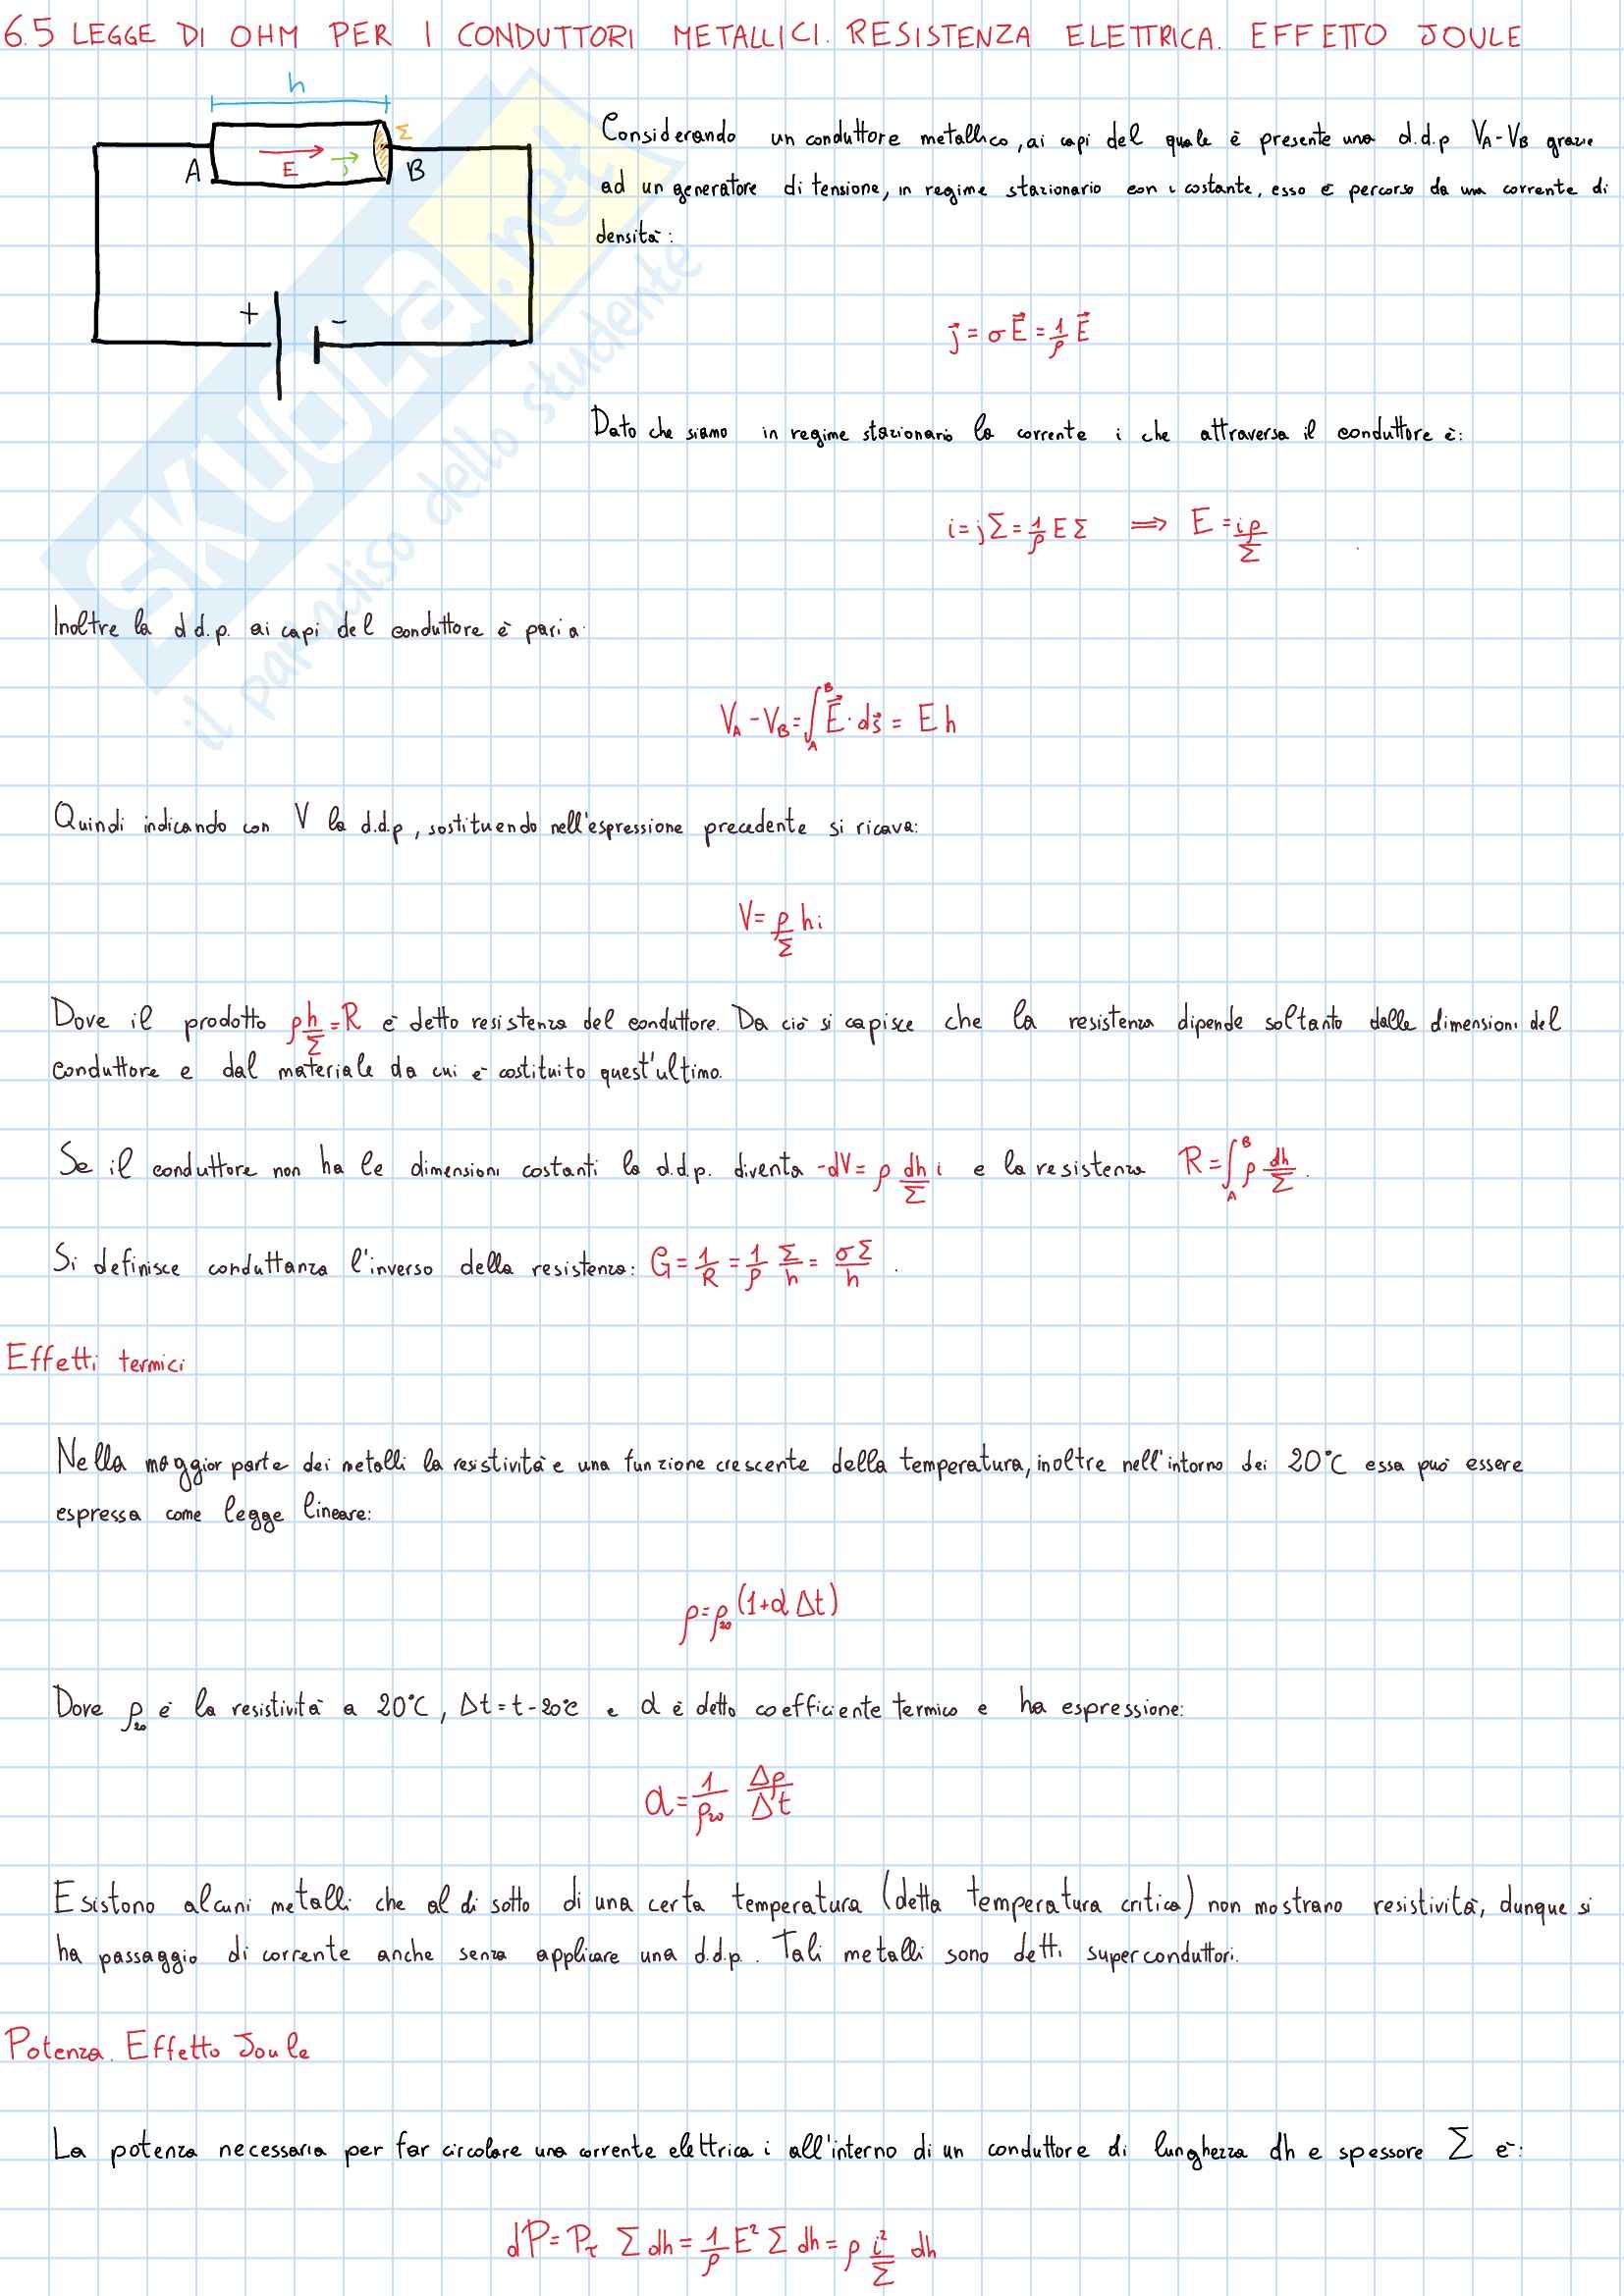 6.5 LEGGE DI OHM PER I CONDUTTORI METALLICI. RESISTENZA ELETTRICA. EFFETTO JOULE
h
Σ
A E j B
+ -
Considerando un conduttore metallico, ai capi del quale è presente una d.d.p VA-VB grazie
ad un generatore di tensione, in regime stazionario con i costante, esso è percorso da una corrente di
densità:
j⃗ = σE⃗ = 1/ρ E⃗
Dato che siamo in regime stazionario la corrente i che attraversa il conduttore è:
i = jΣ = 1/ρ EΣ ⟹ E = iρ/Σ
Inoltre la d d.p. ai capi del conduttore è pari a:
VA - VB = ∫_A^B E⃗ · ds⃗ = E h
Quindi indicando con V la d.d.p, sostituendo nell'espressione precedente si ricava:
V = ρ/Σ h i
Dove il prodotto ρ h/Σ = R è detto resistenza del conduttore. Da ciò si capisce che la resistenza dipende soltanto dalle dimensioni del
conduttore e dal materiale da cui è costituito quest'ultimo.
Se il conduttore non ha le dimensioni costanti la d.d.p. diventa -dV = ρ dh/Σ i e la resistenza R = ∫_A^B ρ dh/Σ.
Si definisce conduttanza l'inverso della resistenza: G = 1/R = 1/ρ Σ/h = σΣ/h.
Effetti termici
Nella maggior parte dei metalli la resistività è una funzione crescente della temperatura, inoltre nell'intorno dei 20°C essa può essere
espressa come legge lineare:
ρ = ρ20 (1+α Δt)
Dove ρ20 è la resistività a 20°C, Δt = t - 20°C e α è detto coefficiente termico e ha espressione:
α = 1/ρ20 Δρ/Δt
Esistono alcuni metalli che al di sotto di una certa temperatura (detta temperatura critica) non mostrano resistività, dunque si
ha passaggio di corrente anche senza applicare una d.d.p. Tali metalli sono detti superconduttori.
Potenza. Effetto Joule
La potenza necessaria per far circolare una corrente elettrica i all'interno di un conduttore di lunghezza dh e spessore Σ è:
dP = Pτ Σ dh = 1/ρ E² Σ dh = ρ i²/Σ dh
SKUOLA.net
il paradiso dello studente